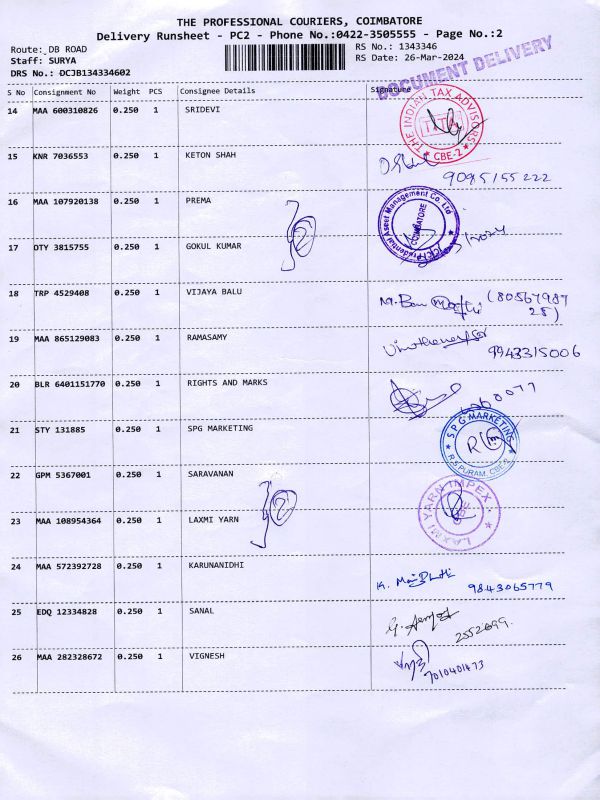 THE PROFESSIONAL COURIERS, COIMBATORE
Delivery Runsheet - PC2 - Phone No.:0422-3505555 - Page No.:2
Route: DB ROAD
RS No.: 1343346
Staff: SURYA
RS Date: 26-Mar-2024
DRS No.: DCJB134334602
DOCUMENT DELIVERY
S No Consignment No Weight PCS Consignee Details Signature
14 MAA 600310826 0.250 1 SRIDEVI
THE INDIAN TAX ADVISORS
CBE-2
15 KNR 7036553 0.250 1 KETON SHAH
9095155222
16 MAA 107920138 0.250 1 PREMA
Asset Management Co. Ltd
COIMBATORE
17 DTY 3815755 0.250 1 GOKUL KUMAR
18 TRP 4529408 0.250 1 VIJAYA BALU
(80567987
28)
19 MAA 865129083 0.250 1 RAMASAMY
9943315006
20 BLR 6401151770 0.250 1 RIGHTS AND MARKS
21 STY 131885 0.250 1 SPG MARKETING
SPG MARKETING
R.S PURAM, CBE-2
22 GPM 5367001 0.250 1 SARAVANAN
23 MAA 108954364 0.250 1 LAXMI YARN
LAXMI YARN IMPEX
24 MAA 572392728 0.250 1 KARUNANIDHI
9843065779
25 EDQ 12334828 0.250 1 SANAL
2552699.
26 MAA 282328672 0.250 1 VIGNESH
7010401473